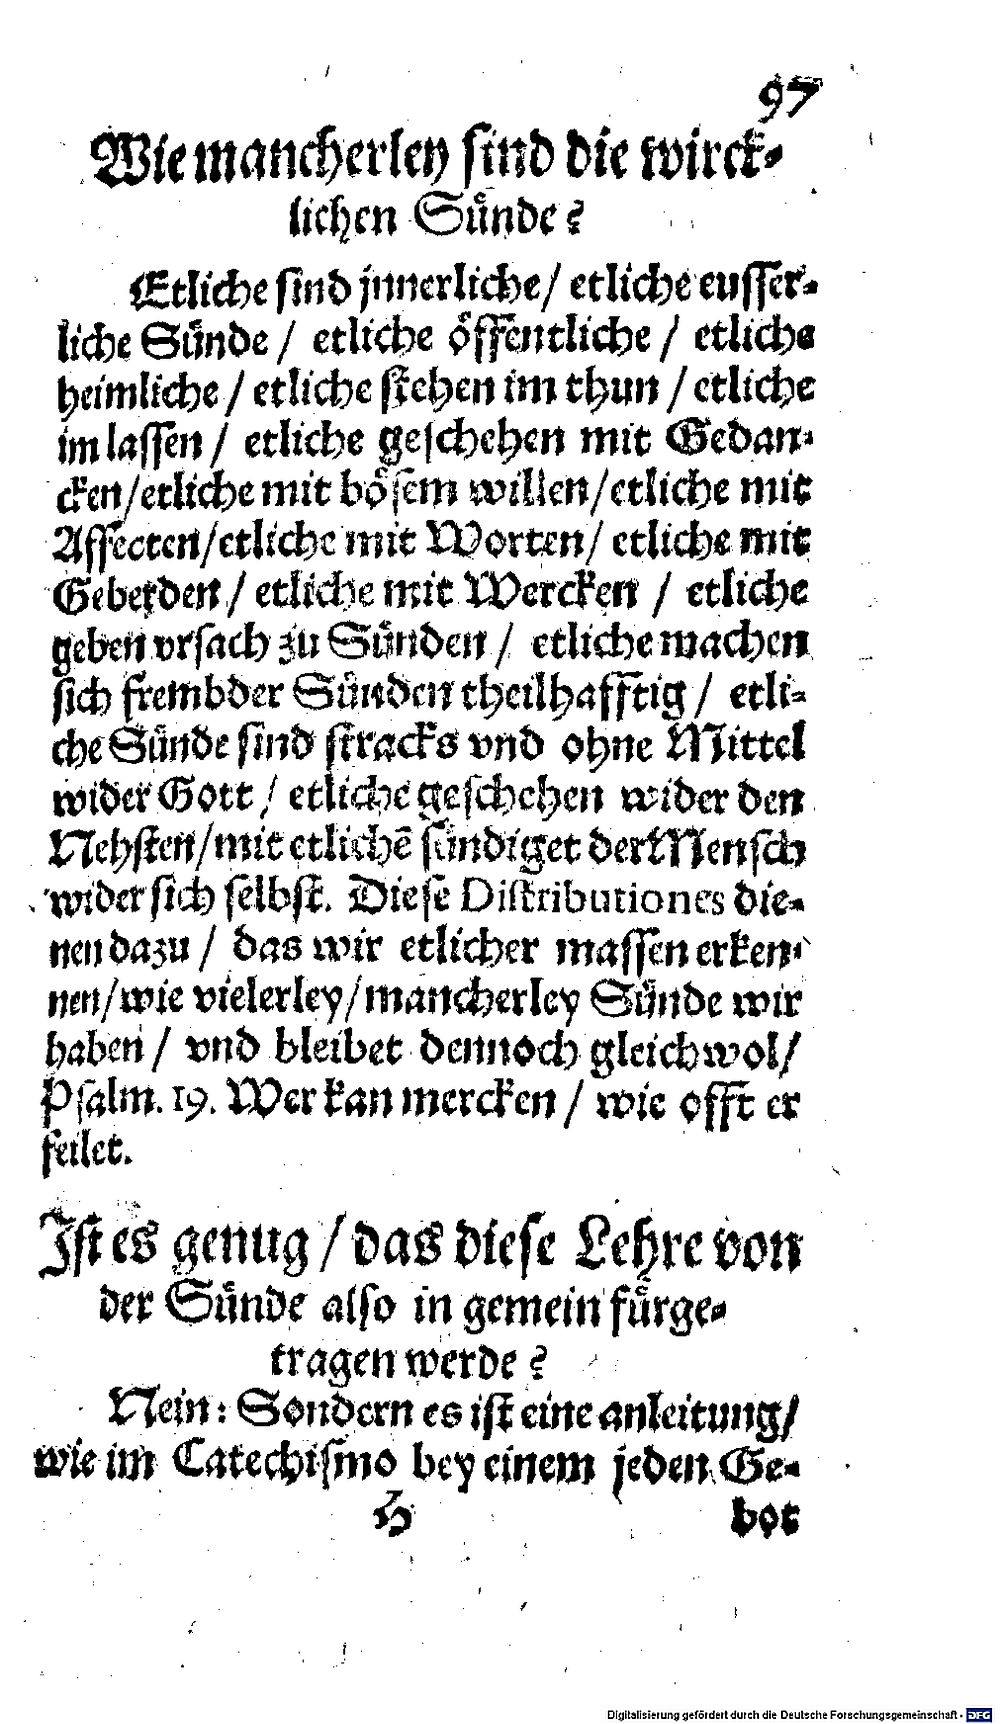 97
Wie mancherley sind die wirck-
lichen Sünde?
Etliche sind jnnerliche/ etliche eusser-
liche Sünde / etliche öffentliche / etliche
heimliche / etliche stehen im thun / etliche
im lassen / etliche geschehen mit Gedan-
cken/etliche mit bösem willen/etliche mit
Affecten/etliche mit Worten/ etliche mit
Geberden / etliche mit Wercken / etliche
geben vrsach zu Sünden / etliche machen
sich frembder Sünden theilhafftig / etli-
che Sünde sind stracks vnd ohne Mittel
wider Gott / etliche geschehen wider den
Nehsten/mit etlichē sündiget der Mensch
wider sich selbst. Diese Distributiones die-
nen dazu / das wir etlicher massen erken-
nen/wie vielerley/mancherley Sünde wir
haben / vnd bleibet dennoch gleichwol/
Psalm. 19. Wer kan mercken / wie offt er
feilet.
Ist es genug / das diese Lehre von
der Sünde also in gemein fürge-
tragen werde?
Nein: Sondern es ist eine anleitung/
wie im Catechismo bey einem jeden Ge-
H bot
Digitalisierung gefördert durch die Deutsche Forschungsgemeinschaft - DFG